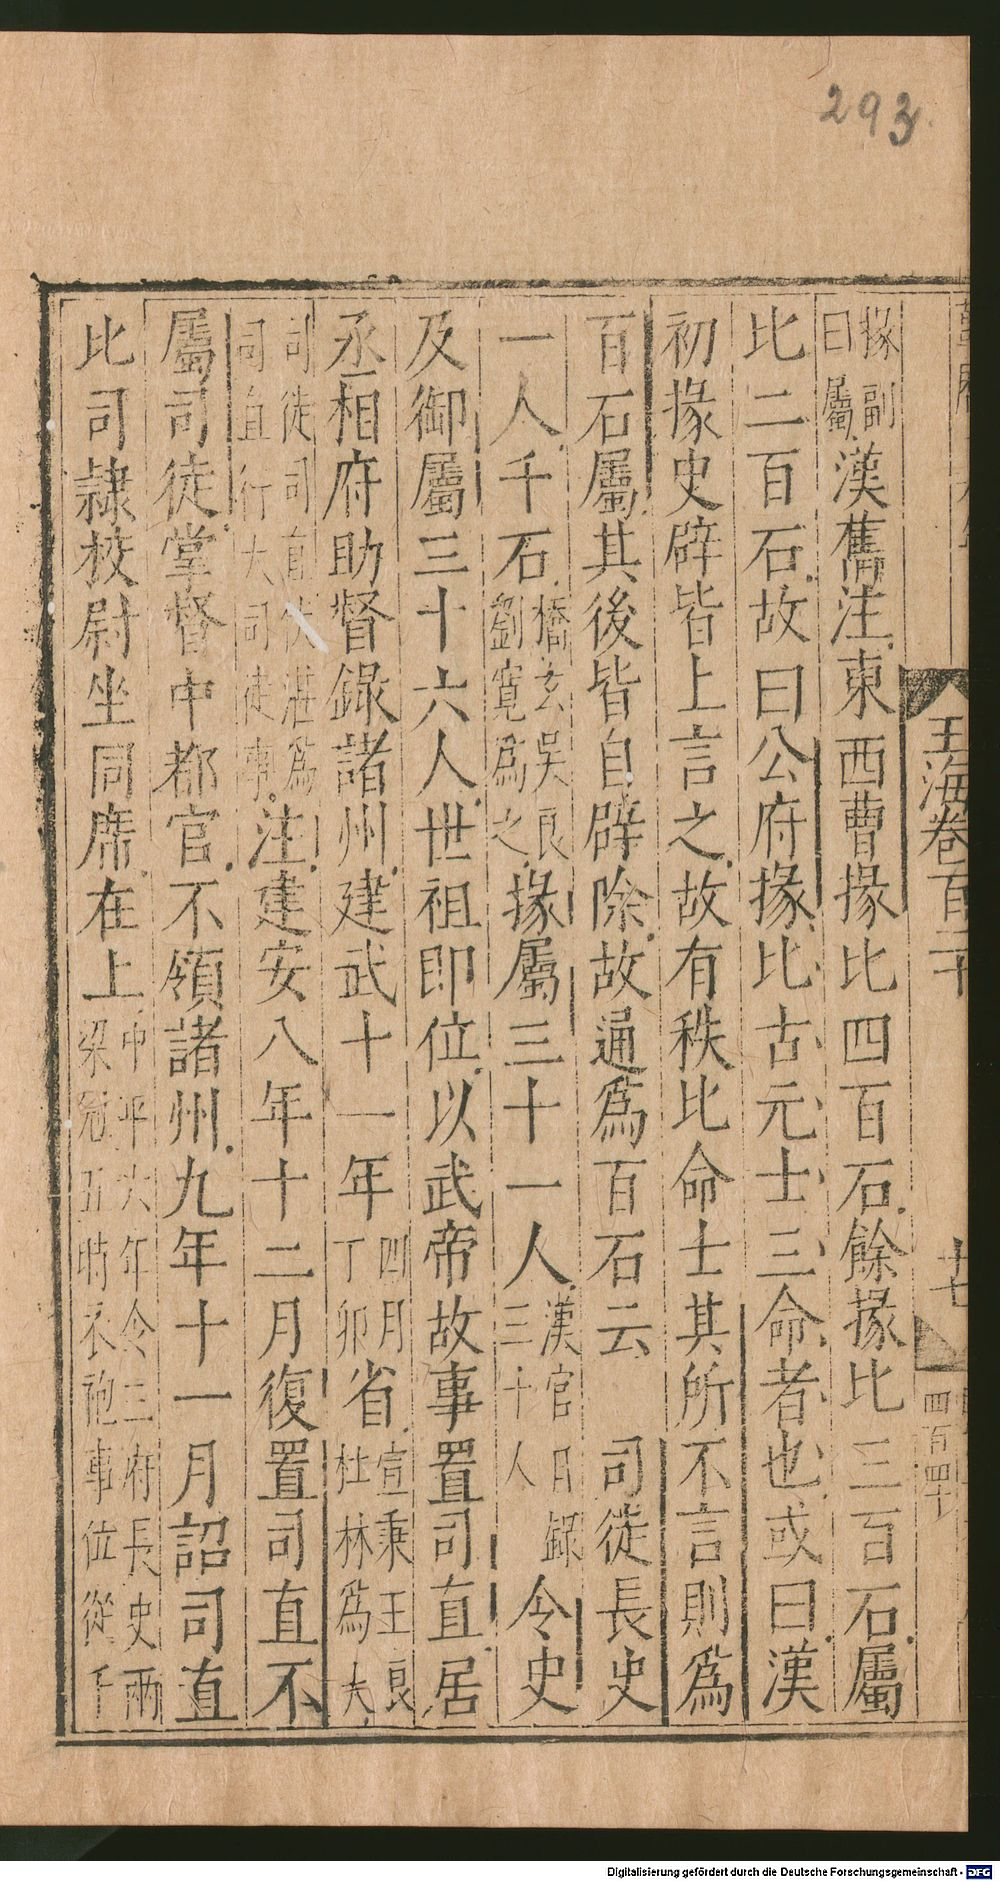 293
玉海卷百二十
十七
四百四十
掾副
曰屬
漢舊注東西曹掾比四百石餘掾比三百石屬
比二百石故曰公府掾比古元士三命者也或曰漢
初掾史辟皆上言之故有秩比命士其所不言則爲
百石屬其後皆自辟除故通爲百石云 司徒長史
一人千石
橋玄吳良
劉寬爲之
掾屬三十一人
漢官目録
三十人
令史
及御屬三十六人世祖即位以武帝故事置司直居
丞相府助督録諸州建武十一年
四月
丁卯
省
宣秉王良
杜林爲大
司徒司直伏湛爲
司直行大司徒事
注建安八年十二月復置司直不
屬司徒掌督中都官不領諸州九年十一月詔司直
比司隷校尉坐同席在上
中平六年令三府長史兩
梁冠五時衣袍事位從千
Digitalisierung gefördert durch die Deutsche Forschungsgemeinschaft - DFG